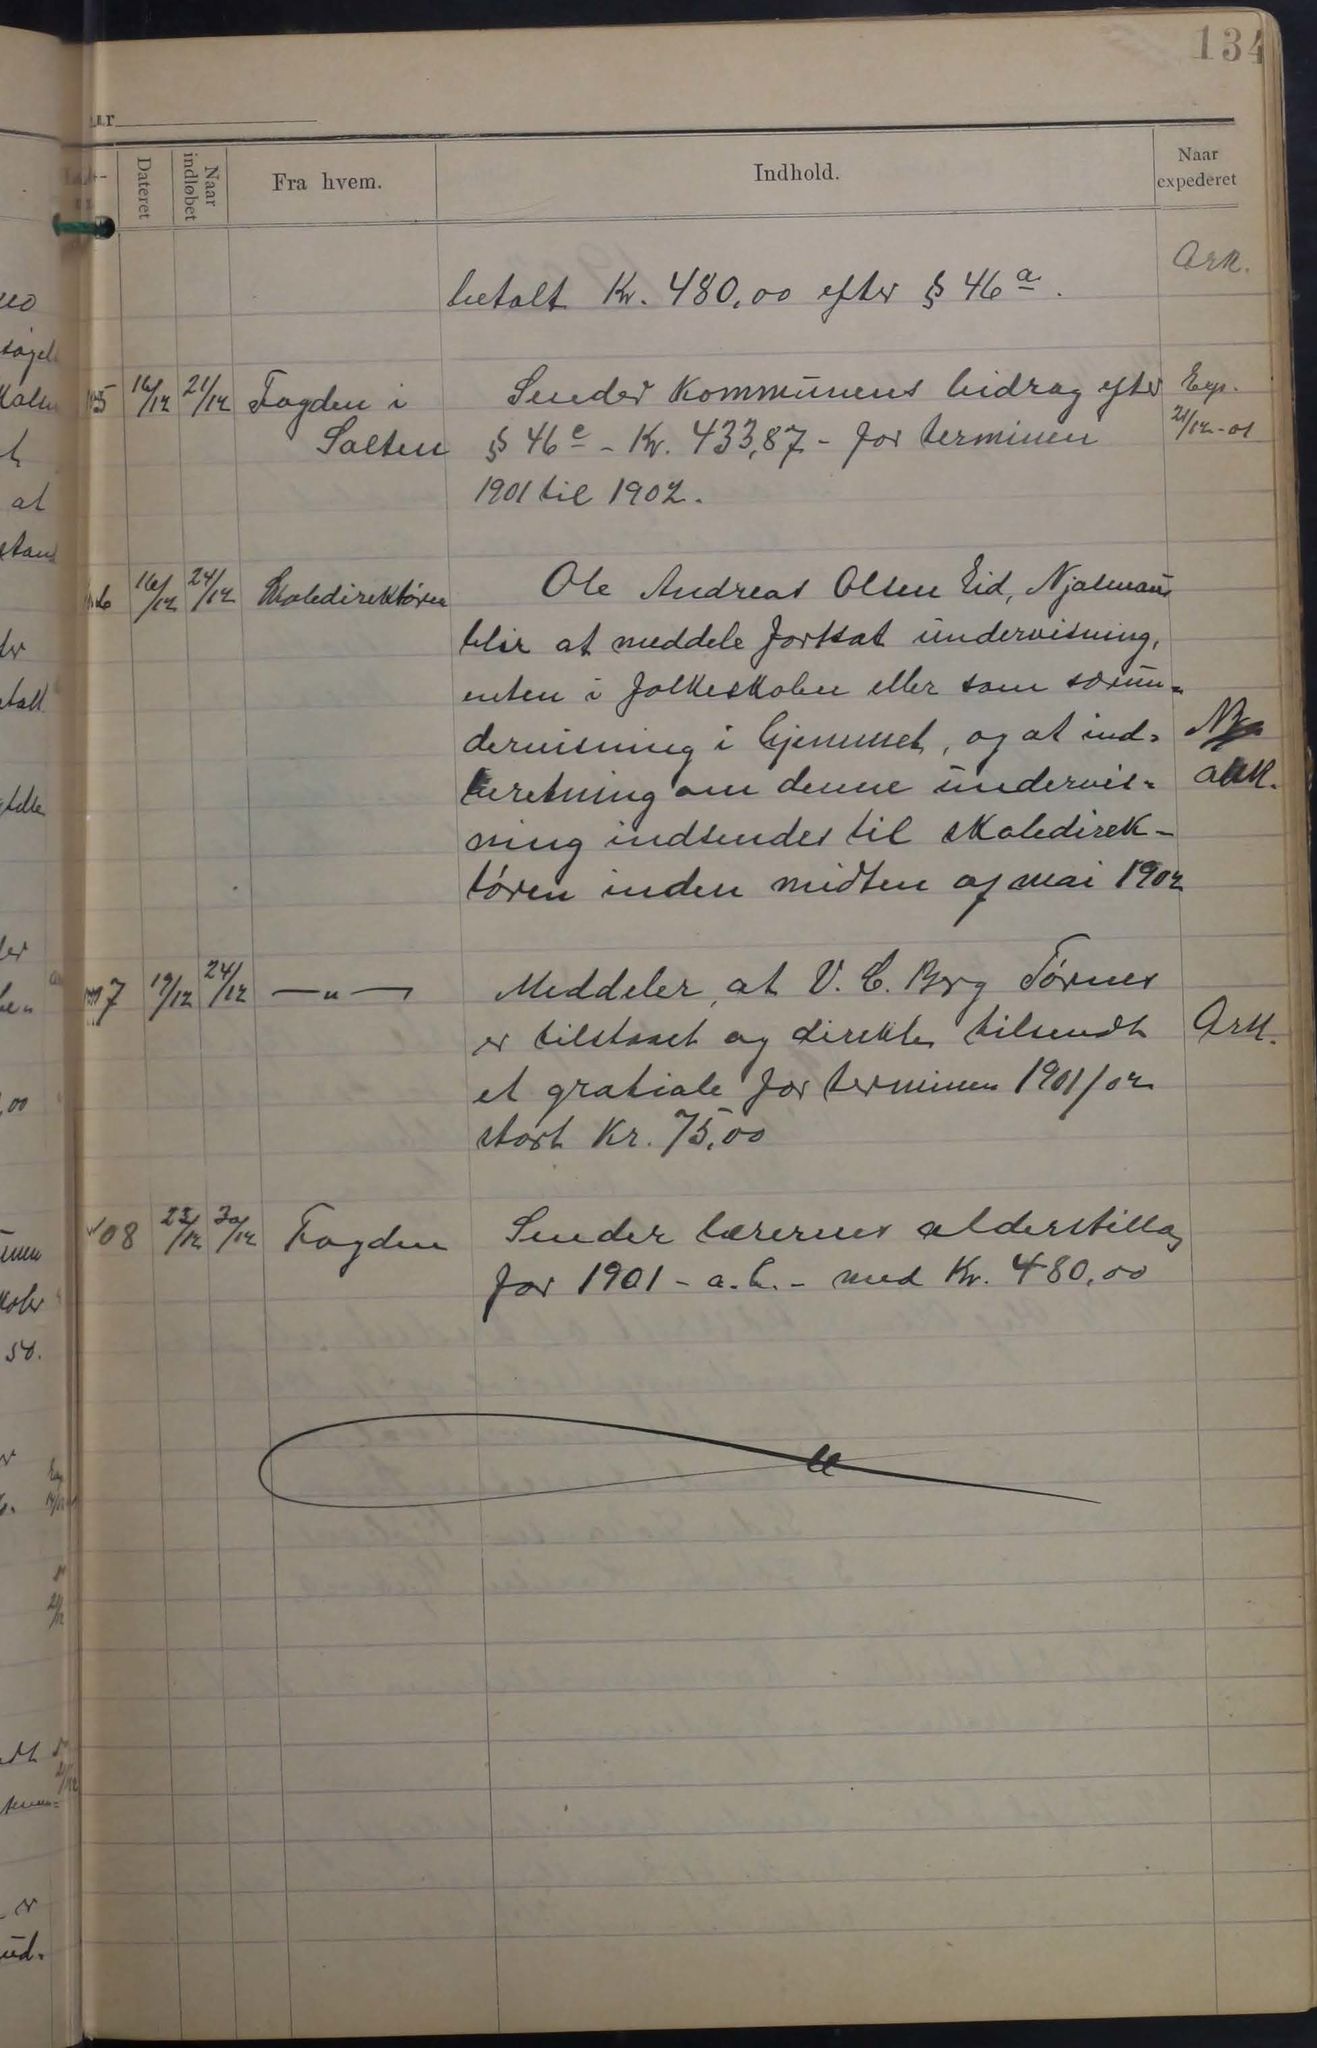 134
Dateret
Naar indløbet
Fra hvem.
Indhold.
Naar expederet
betalt Kr. 480,00 efter § 46 a.
Ark.
16/12 21/12 Fogden i Salten
Sender kommunens bidrag efter
§ 46 c - Kr. 433,87 - for terminen
1901 til 1902.
Exp.
21/12-01
16/12 24/12 Skoledirektøren
Ole Andreas Olsen Eid,
blir at meddele fortsat undervisning,
enten i folkeskolen eller som særun-
dervisning i hjemmet, og at ind-
beretning om denne undervis-
ning indsendes til skoledirek-
tøren inden midten af mai 1902
ark.
7 19/12 24/12 —"—
Meddeler, at V. C. Berg Tørnes
er tilstaaet og direkte tilsendt
et gratiale for terminen 1901/02
stort Kr. 75,00
Ark.
08 23/12 30/12 Fogden
Sender lærernes alderstillæg
for 1901 - a. h. - med Kr. 480,00